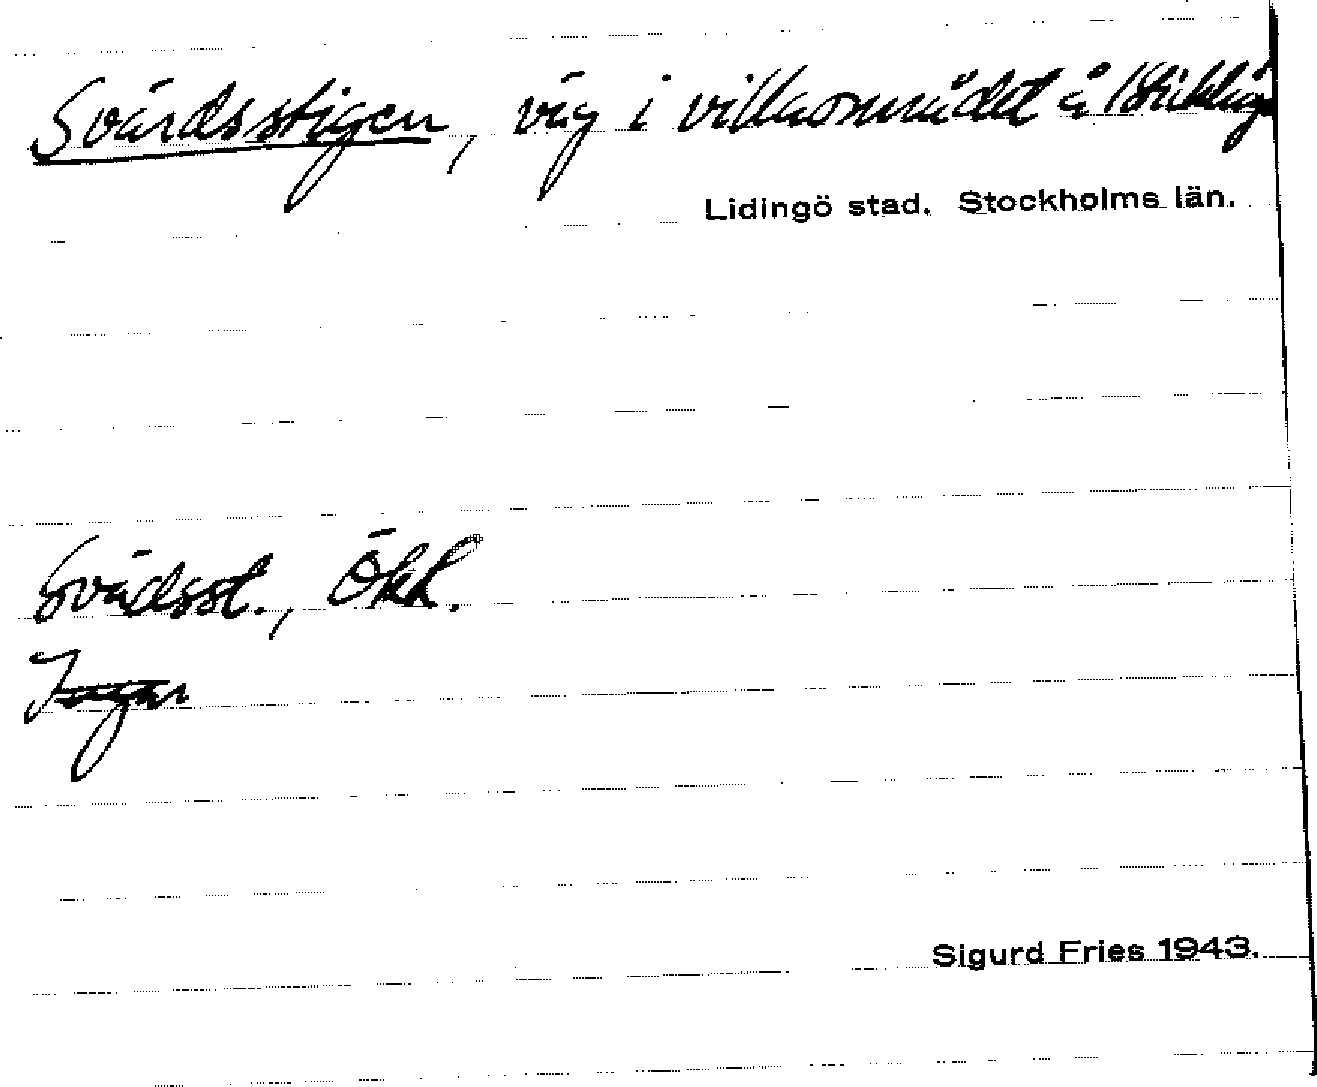 Svärdsstigen, väg i villaområdet å
Lidingö stad. Stockholms län.
Svärdsst., Ökk.
Sigurd Fries 1943.